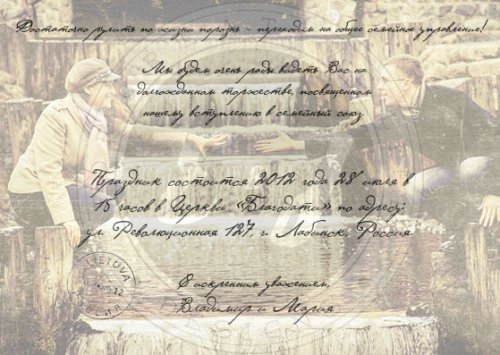 Достаточно рулить по жизни порознь - переходим на общее семейное управление!
Мы будем очень рады видеть Вас на
долгожданном торжестве, посвященном
нашему вступлению в семейный союз
Праздник состоится 2012 года 28 июля в
15 часов в Церкви «Благодати» по адресу:
ул. Революционная 127, г. Лабинск, Россия
С искренним уважением,
Владимир и Мария
LIETUVA